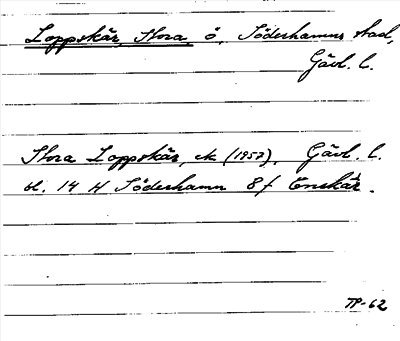 Loppskär, Stora, ö, Söderhamns stad,
Gävl. l.
Stora Loppskär, ek (1957), Gävl. l.
bl. 14 H Söderhamn 8f Enskär.
TP-62